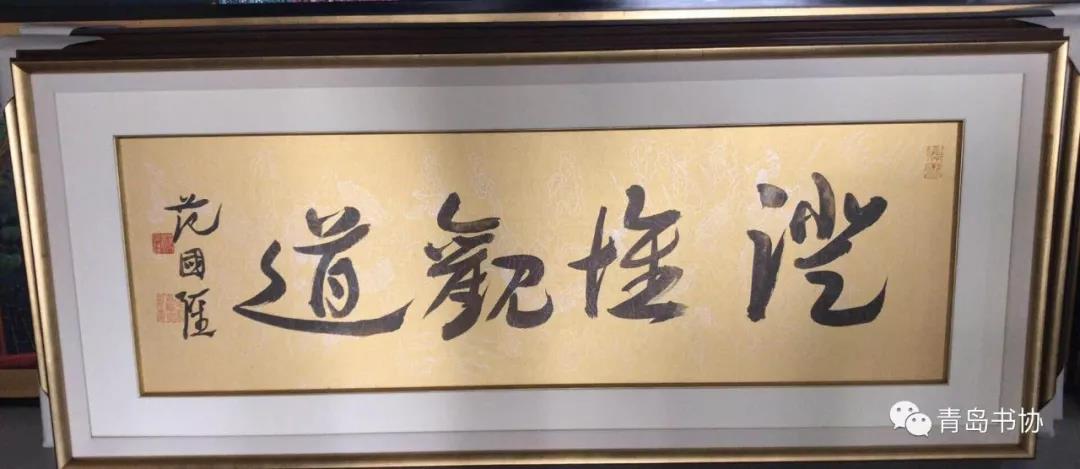 澄懷觀道
范國
青岛书协